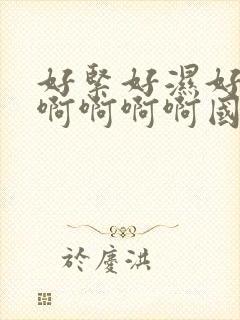 好緊好濕好
啊啊啊啊國
於慶洪